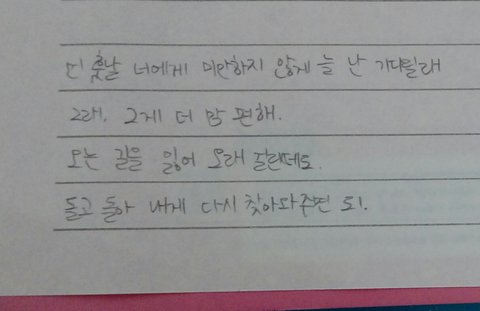 먼 훗날 너에게 미안하지 않게 늘 난 기다릴래
그래. 그게 더 맘 편해.
오는 길을 잃어 오래 걸린데도.
돌고 돌아 내게 다시 찾아와주면 되.